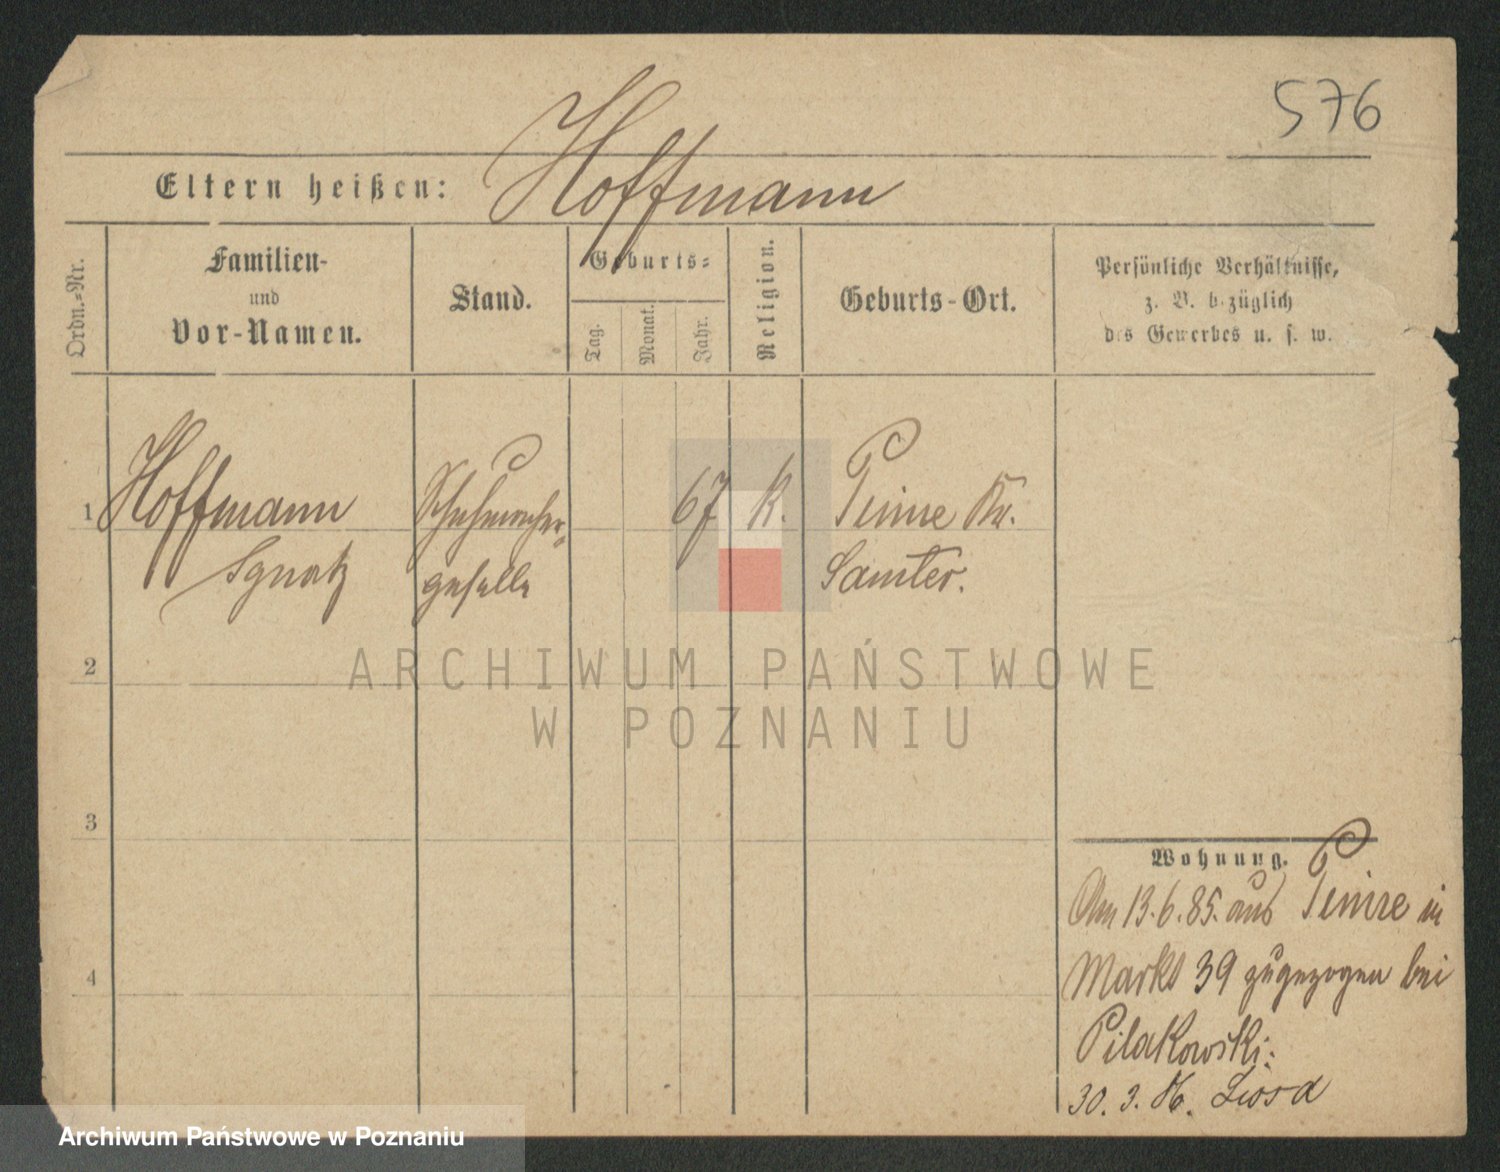 576
Eltern heißen: Hoffmann
Ordn.-Nr.
Familien-
und
Vor-Namen.
Stand.
Geburts-
Tag.
Monat.
Jahr.
Religion.
Geburts-Ort.
Persönliche Verhältnisse,
z. B. bezüglich
des Gewerbes u. s. w.
1 Hoffmann Schuhmacher- 67 k. Peinne Kr.
Ignatz geselle Samter.
2
3
4
Wohnung.
Am 13.6.85. aus Peinne in
Markt 39 zugezogen bei
Pilakowski.
30. 3. 86.
ARCHIWUM PAŃSTWOWE
W POZNANIU
Archiwum Państwowe w Poznaniu